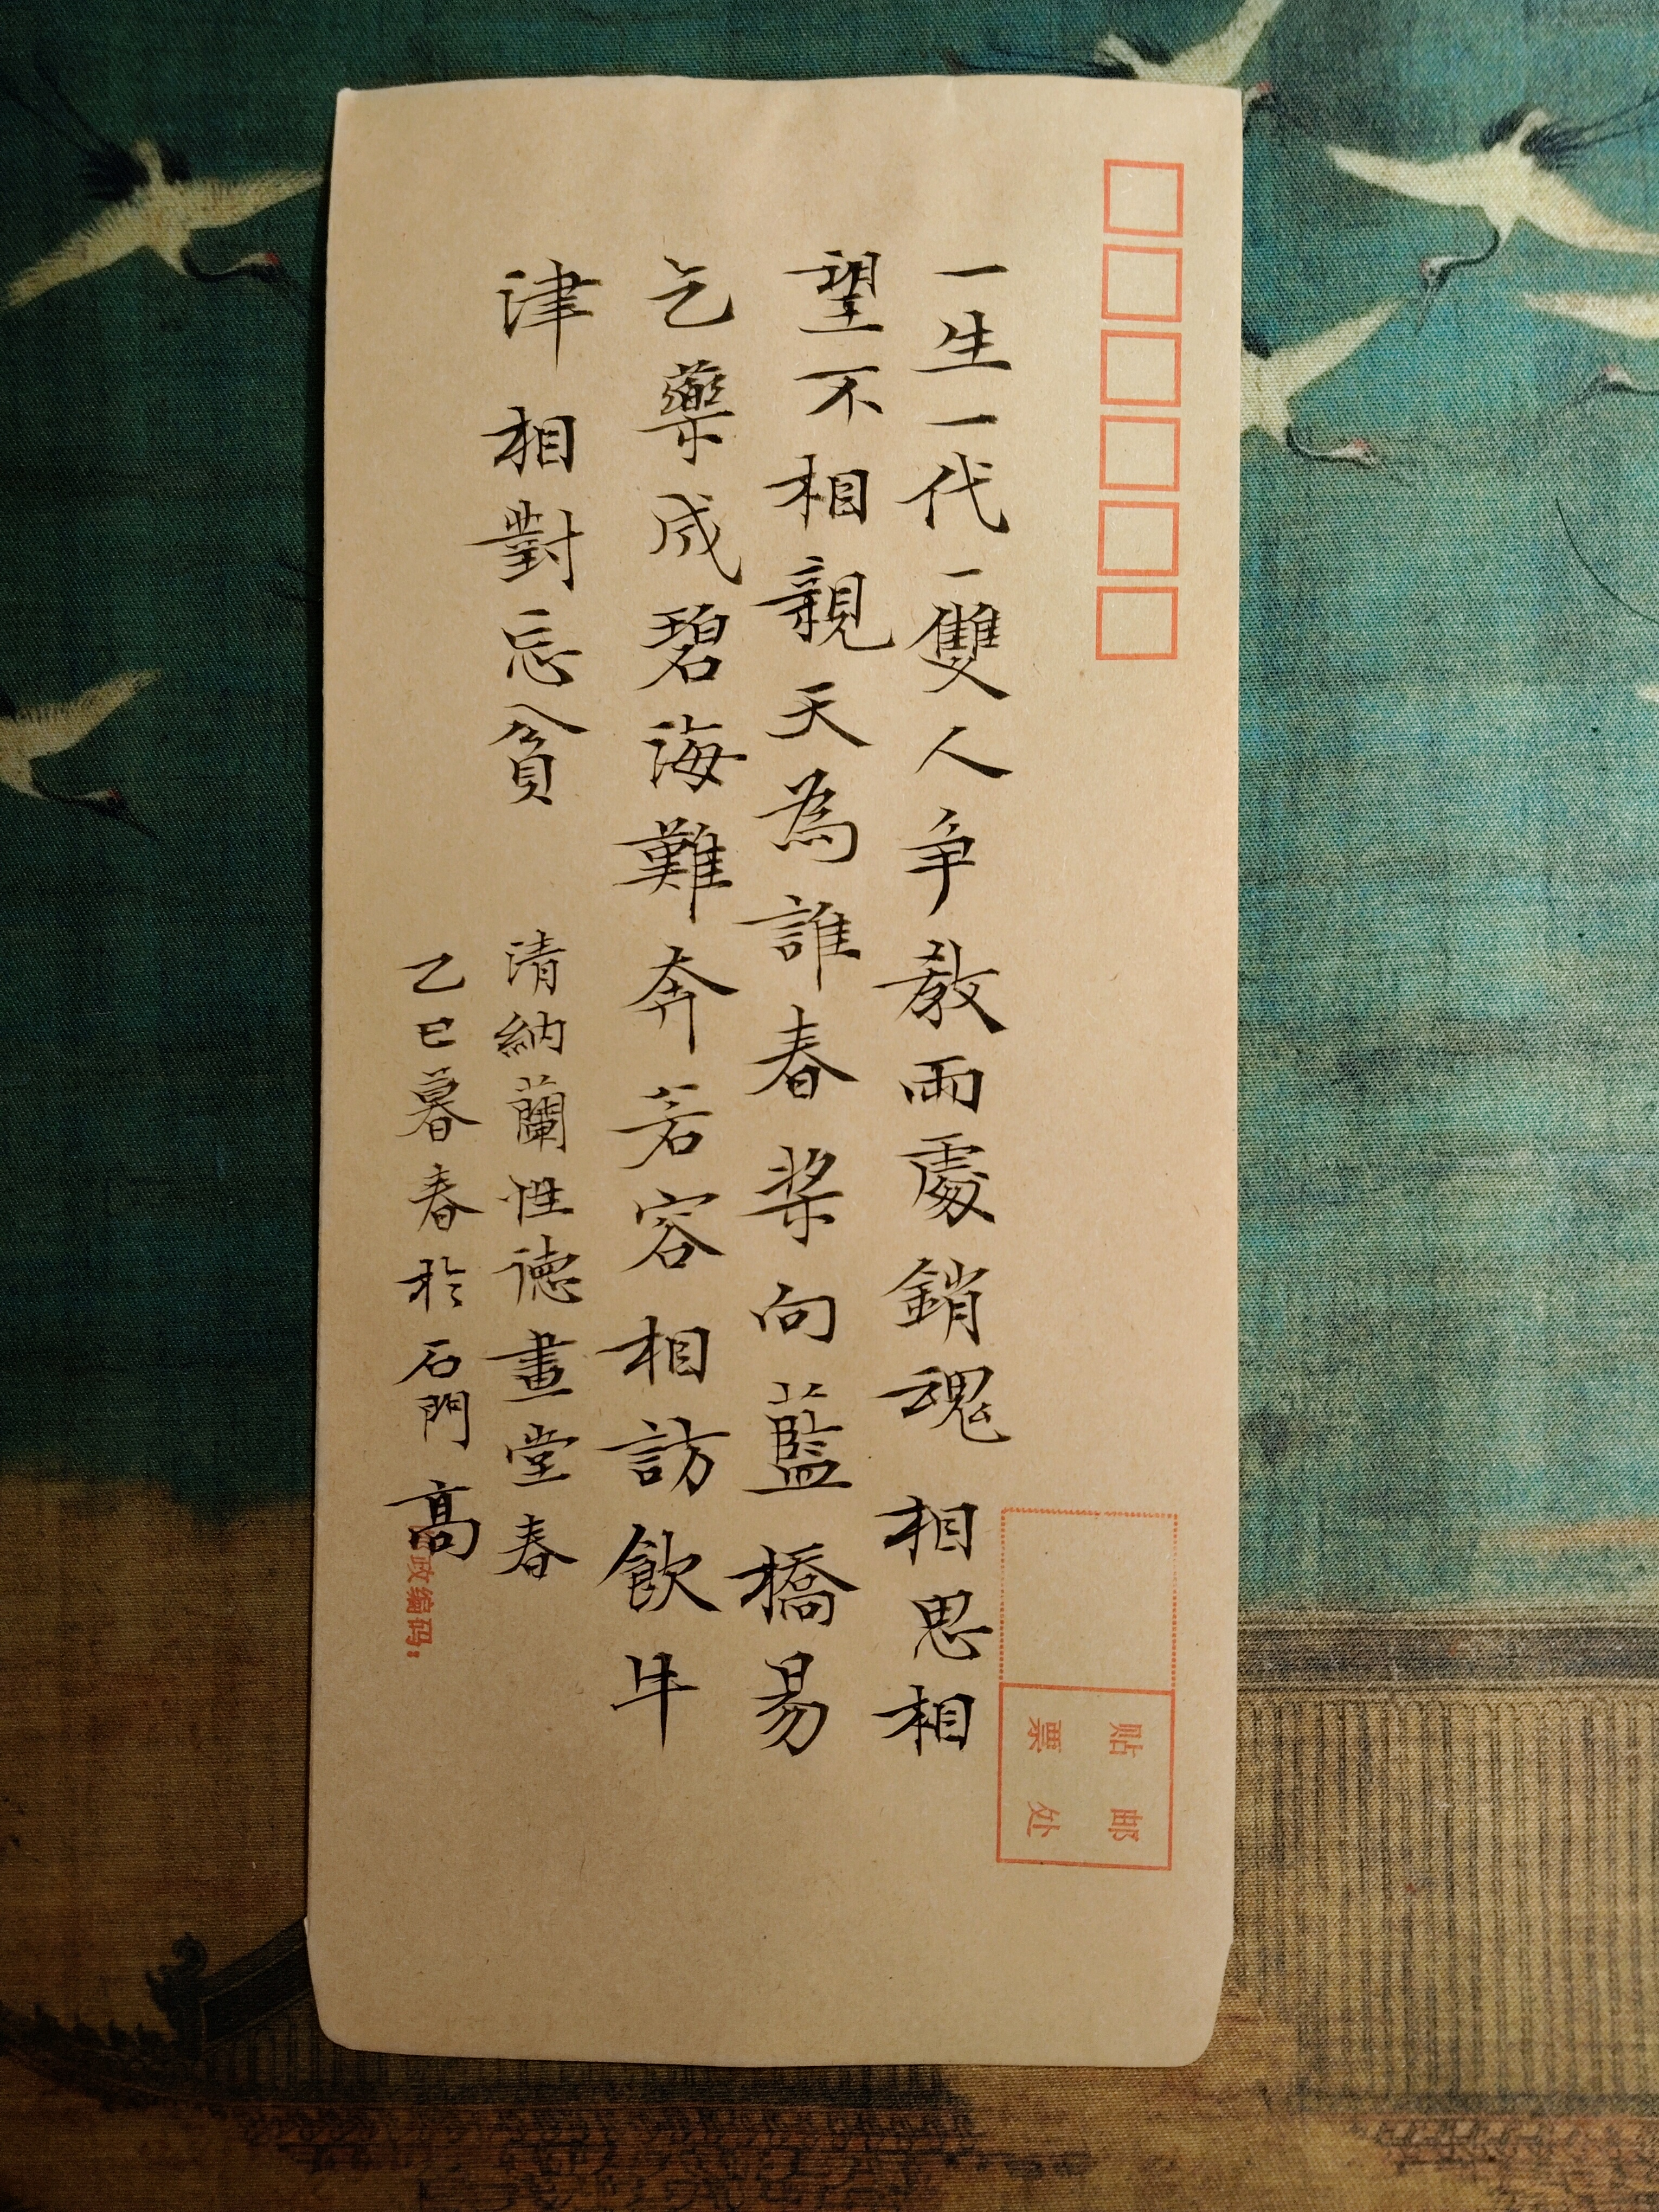 一生一代一雙人争教兩處銷魂相思相
望不相親天為誰春槳向藍橋易
乞藥成碧海難奔若容相訪飲牛
津相對忘貧
清納蘭性德畫堂春
乙巳暮春於石門高
政编码：
贴邮
票处